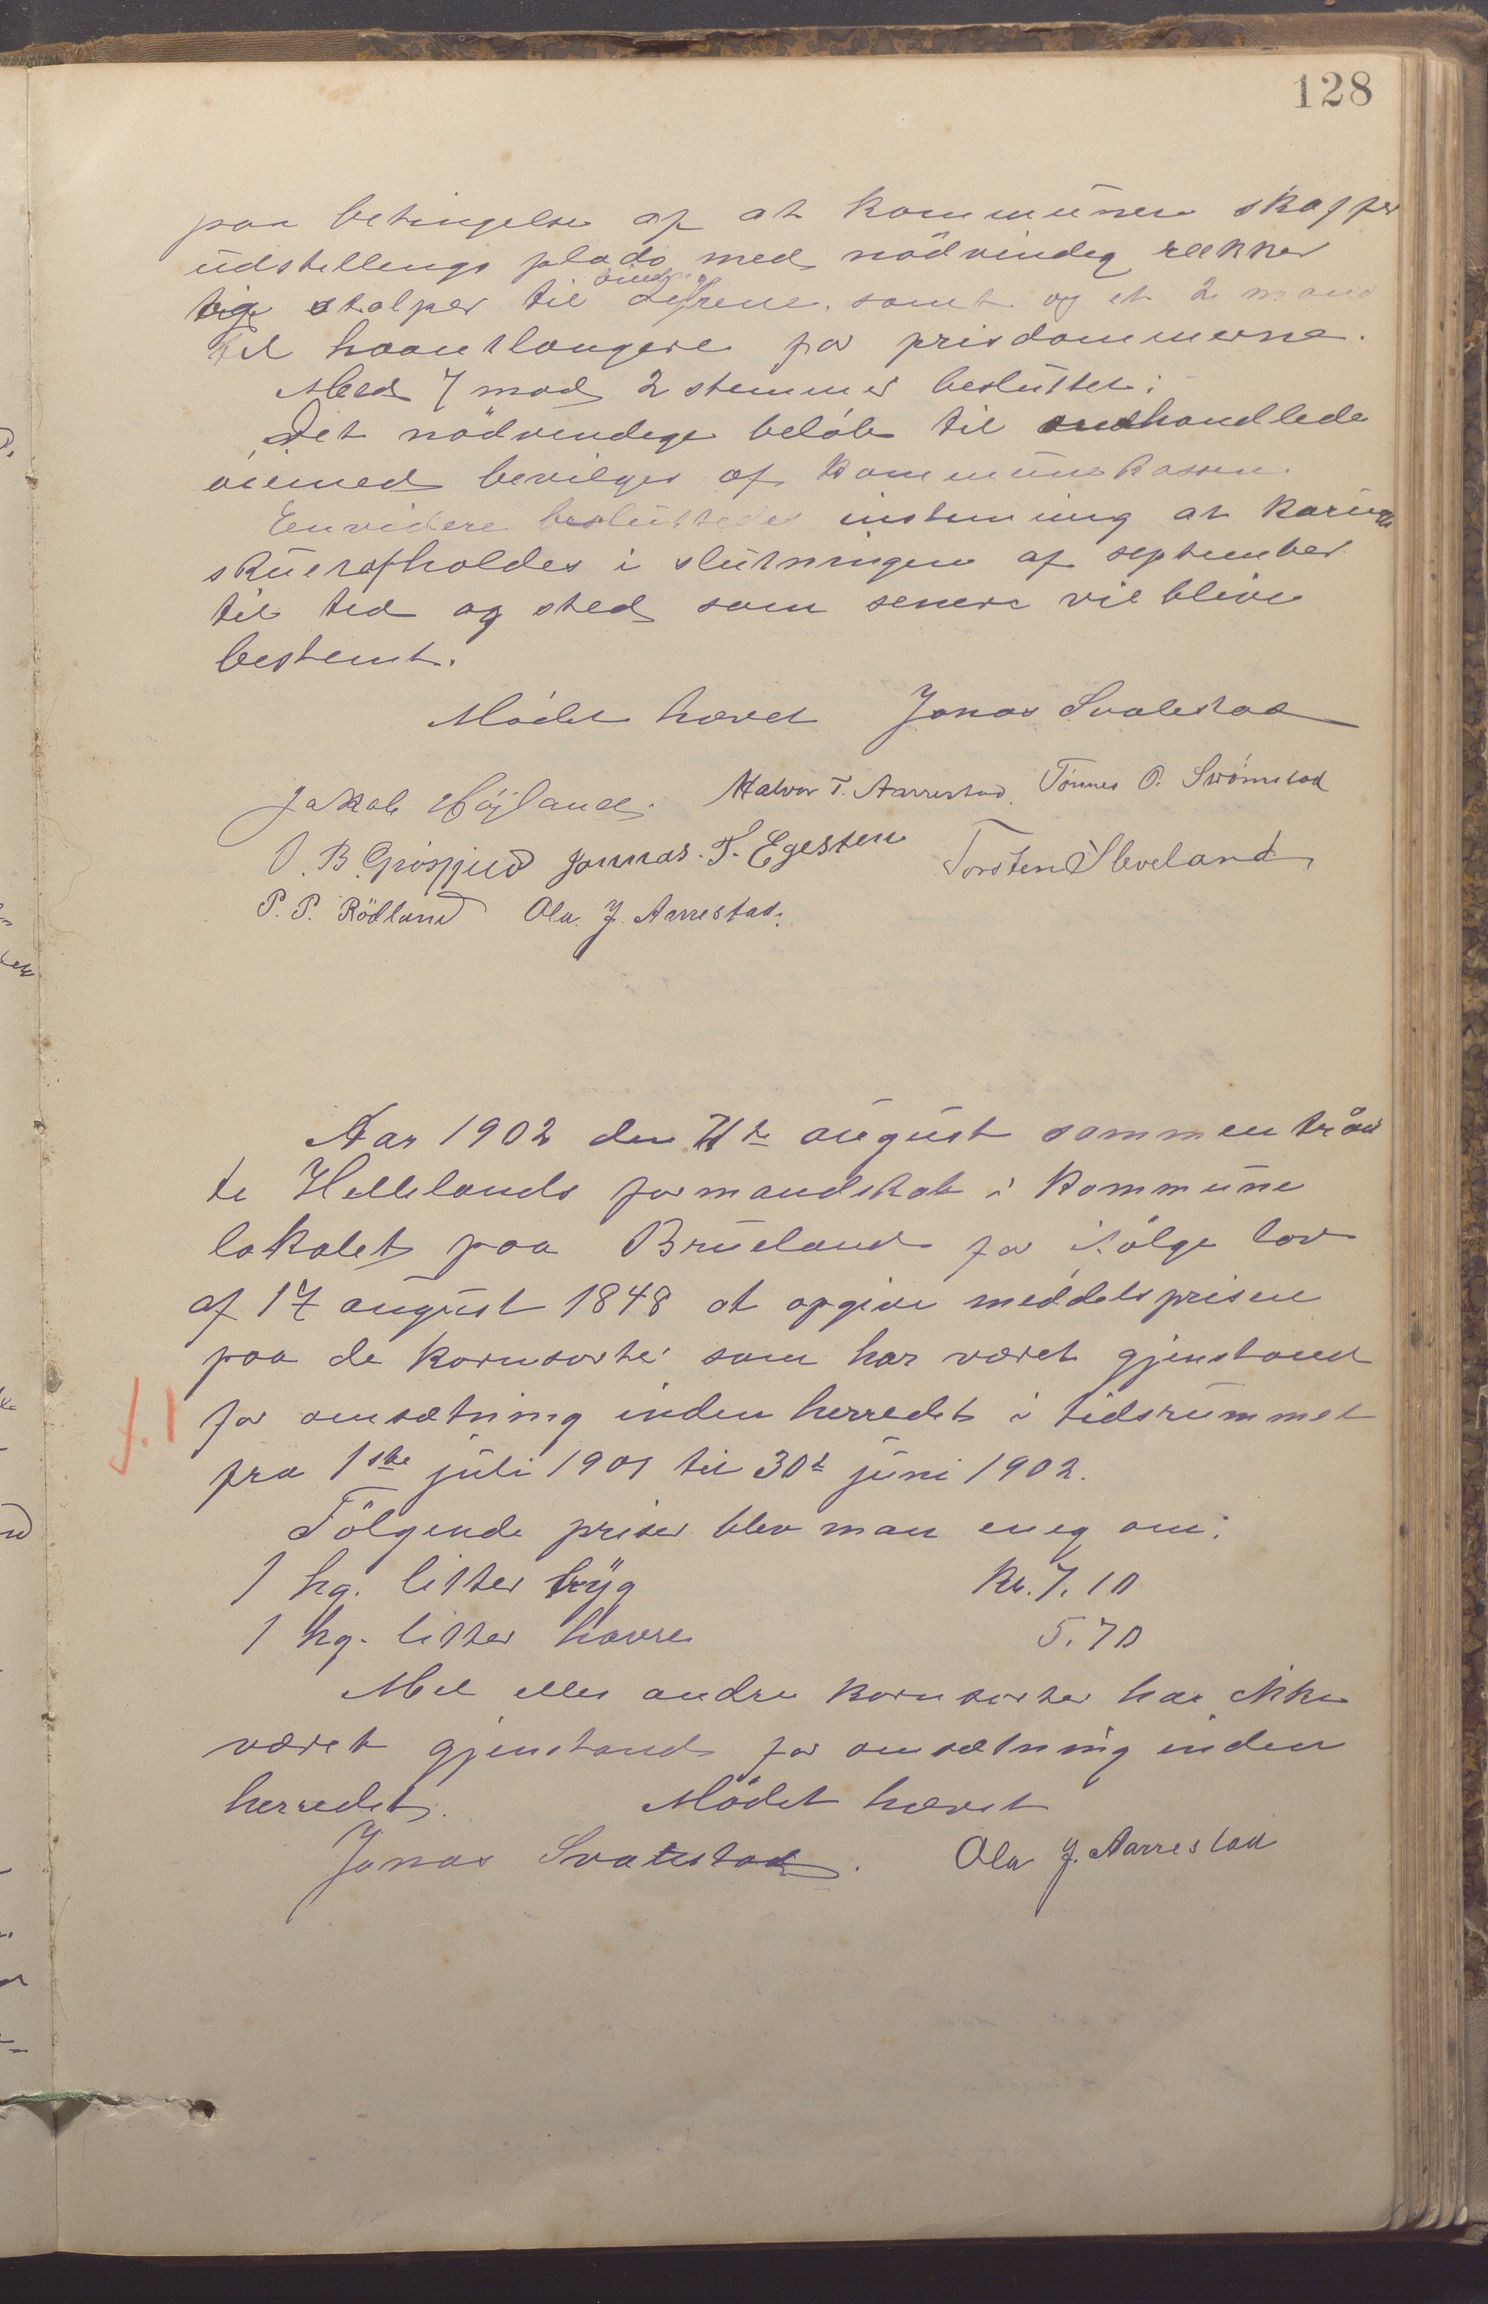 128
paa betingelse af at kommunen skaffer
udstillings plads med nödvendig rækker
og stolper til dyrene. samt og et 2 mand
til haantlangere for prisdommerne.
Med 7 mod 2 stemmer besluttet:
Det nödvendige belöb til omhandlede
öiemed bevilges af kommunekassen.
Envidere besluttedes instemmig at
skuet afholdes i slutningen af september
til tid og sted som senere vil blive
bestemt.
Mödet hævet Jonas Svalestad
Jakob Höjland. Halvor T. Aarrestad. Tönnes O. Svömstad
O. B. Jonnas. T. Egesten Torsten Sleveland
P. P. Rödland Ola. J. Aarrestad.
Aar 1902 den august sammentraad
te Hellelands formandskab i kommune
lokalet paa Brueland for ifölge lov
af 17 august 1848 at opgive meddelsprisen
paa de kornsorter som har været gjenstand
for omsætning inden herredet i tidsrummet
f. 1
fra 1ste juli 1901 til 30te juni 1902.
Fölgende priser blev man enig om:
1 hg. litter byg Kr. 7.10
1 hg. litter havre 5.70
Mel eller andre kornsorter har ikke
været gjenstand for omsætning inden
herredet. Mödet hævet
Jonas Svalestad. Ola J. Aarrestad